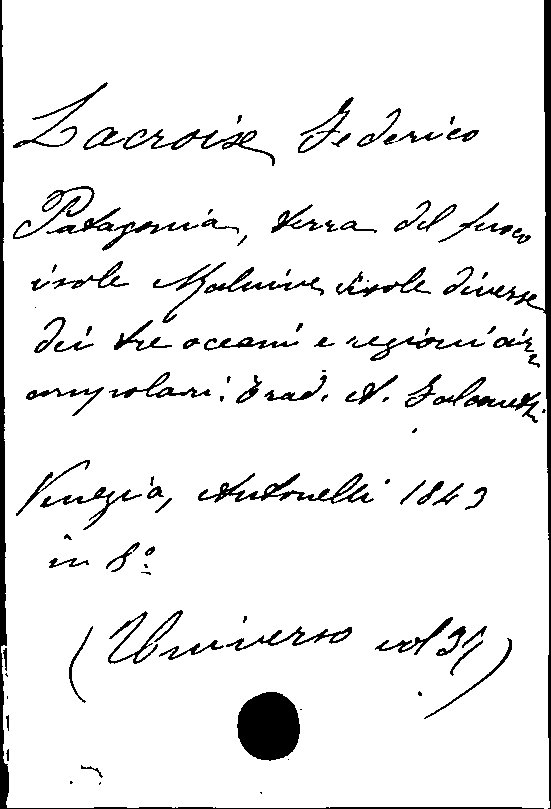 Lacroix Federico
Patagonia, terra del fuoco
isole Maluine, isole diverse
dei tre oceani e regioni cir
cumpolari: Trad. A. Falconetti
Venezia, Antonelli 1843
in 8º
(Universo vol 31)